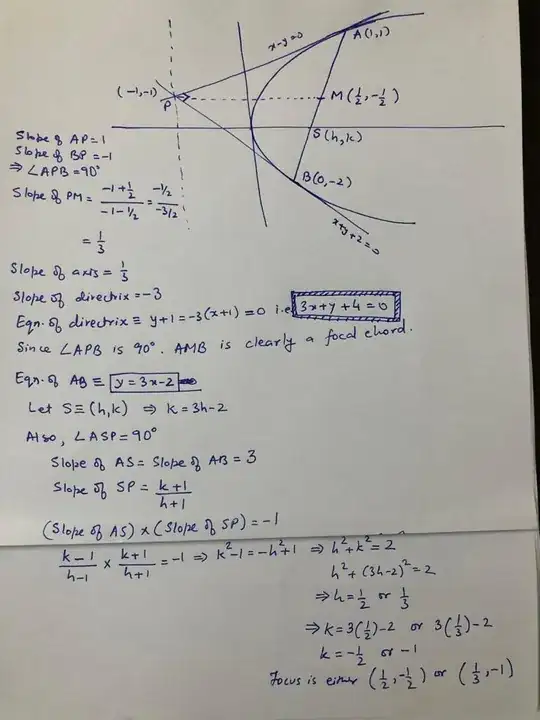 x-y=0
A(1,1)
(-1,-1)
P
M(1/2,-1/2)
S(h,k)
B(0,-2)
x+y+2=0
Slope of AP=1
Slope of BP=-1
⇒ ∠APB=90°
Slope of PM= (-1+1/2)/(-1-1/2) = (-1/2)/(-3/2)
= 1/3
Slope of axis= 1/3
Slope of directrix=-3
Eqn. of directrix ≡ y+1=-3(x+1)=0 i.e. 3x+y+4=0
Since ∠APB is 90°. AMB is clearly a focal chord.
Eqn. of AB ≡ y=3x-2
Let S≡(h,k) ⇒ k=3h-2
Also, ∠ASP=90°
Slope of AS= Slope of AB= 3
Slope of SP= (k+1)/(h+1)
(Slope of AS) x (Slope of SP)=-1
(k-1)/(h-1) x (k+1)/(h+1) =-1 ⇒ k²-1=-h²+1 ⇒ h²+k²=2
h²+(3h-2)²=2
⇒h= 1/2 or 1/3
⇒k=3(1/2)-2 or 3(1/3)-2
k=-1/2 or -1
Focus is either (1/2,-1/2) or (1/3,-1)